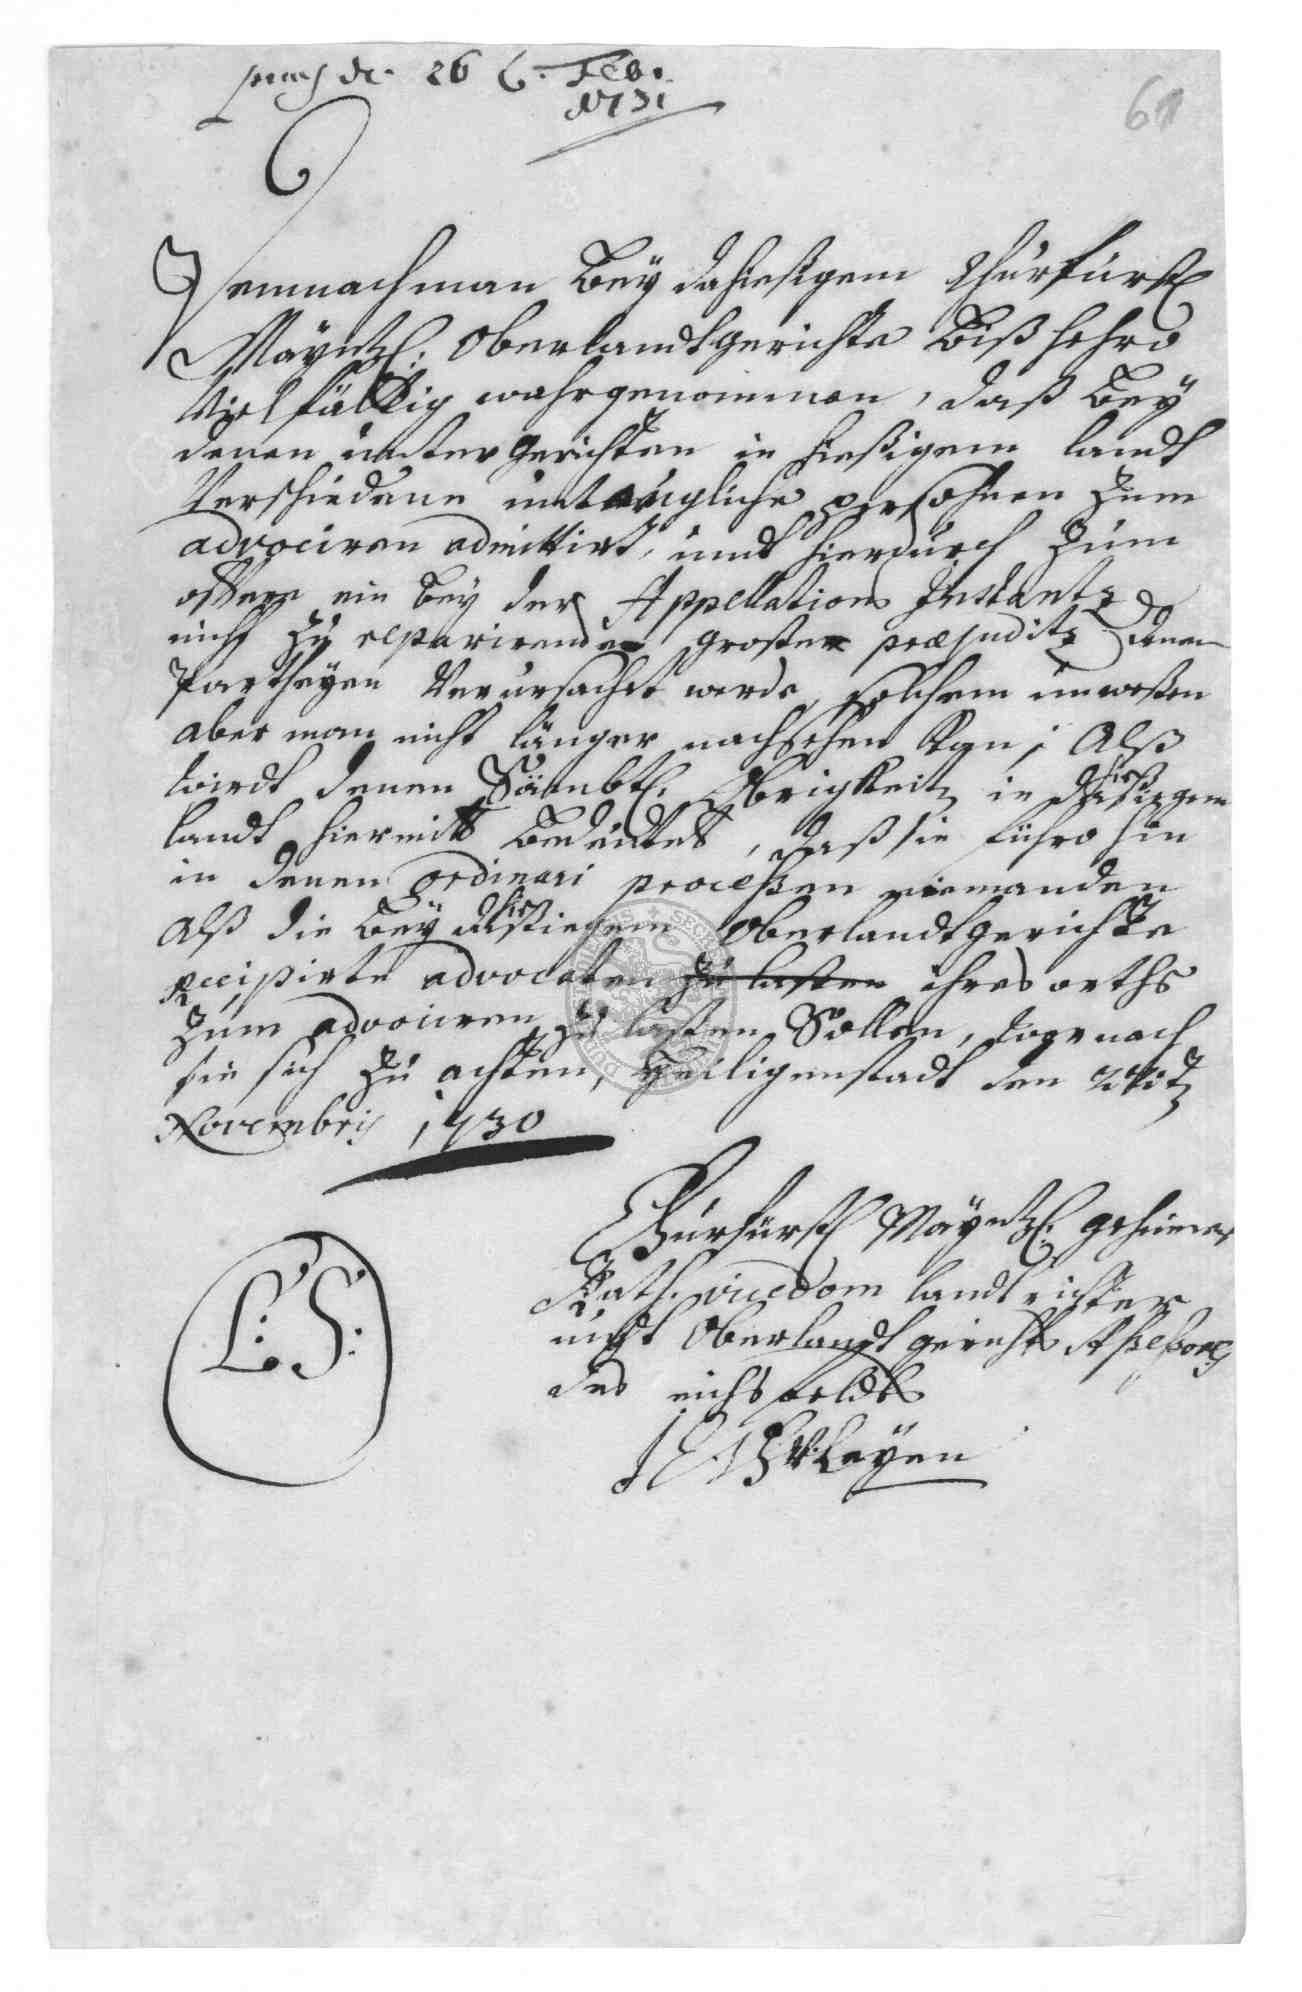 26 t. Feb.
1731
61
Demnach man bey dahießigem Churfürstl
Mayntzl: Oberlandtgerichte biß hehro
Vielfältig wahrgenommen, daß bey
denen untergerichten in hießigem landt
Verschiedene untaugliche persohnen zum
advociren admittirt, undt hierdurch zum
öftern ein bey der Appellations Instantz
nicht zu reparirendes großer præjuditz denen
Partheyen Verursachet werde, solchem unweßen
aber man nicht länger nachsehen kan; Alß
wirdt denen Sämbtl. Obrigkeitn in hießigem
landt hiermit bedeutet, daß sie führo hin
in denen ordinari proceßen niemanden
Alß die bey hießigem Oberlandtgerichte
recipirte advocaten zu laßen ihres orths
zum advociren zu laßen Sollen, wornach
sie sich zu achten, Heiligenstadt den
Novembris 1730
Churfürstl Mayntzl. geheimer
Rath. vicedom landtrichter
undt Oberlandtgerichts Assessores
des eichsfeldts
v: Leyen
L: S: